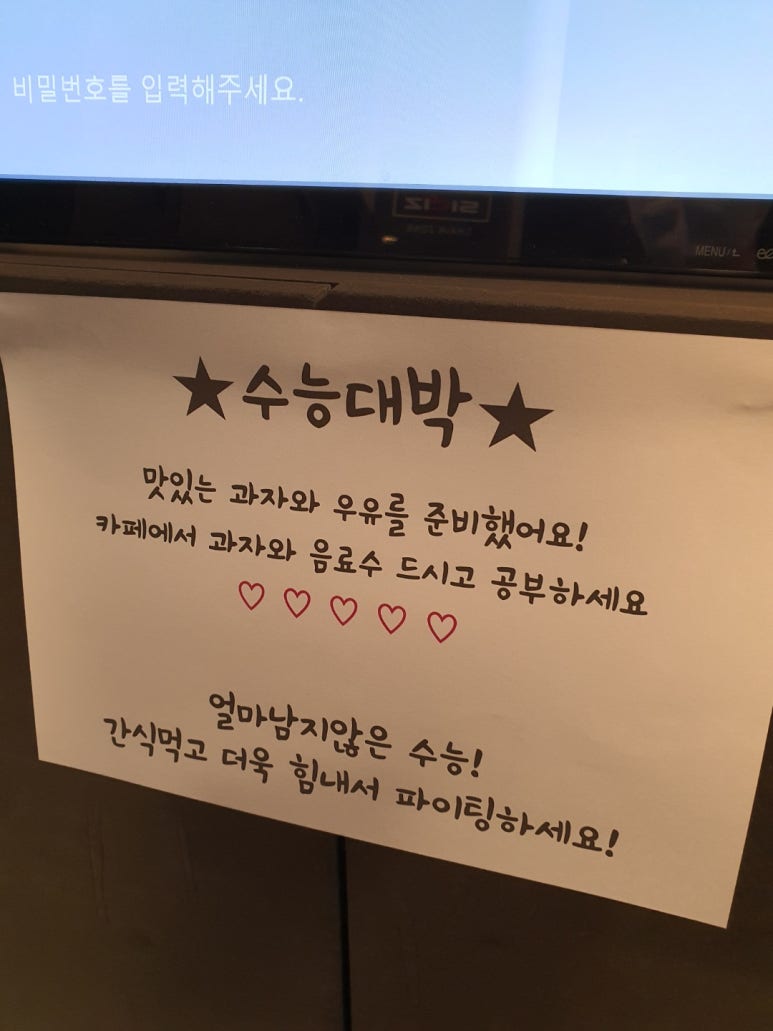 비밀번호를 입력해주세요.
MENU/
★수능대박★
맛있는 과자와 우유를 준비했어요!
카페에서 과자와 음료수 드시고 공부하세요
♡ ♡ ♡ ♡ ♡
얼마남지않은 수능!
간식먹고 더욱 힘내서 파이팅하세요!